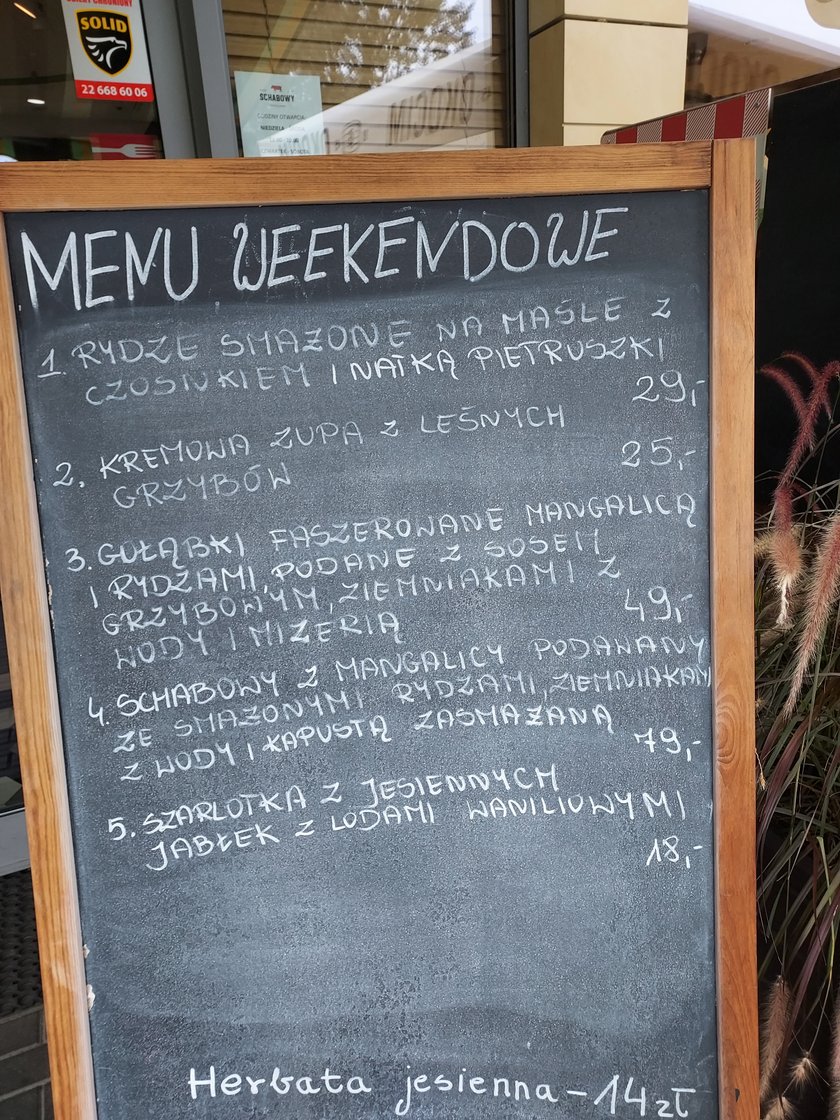 SOLID
22 668 60 06
SCHABOWY
GODZINY OTWARCIA
MENU WEEKENDOWE
1. RYDZE SMAŻONE NA MAŚLE Z
CZOSNKIEM I NATKĄ PIETRUSZKI
29,-
2. KREMOWA ZUPA Z LEŚNYCH
GRZYBÓW
25,-
3. GOŁĄBKI FASZEROWANE MANGALICĄ
I RYDZAMI, PODANE Z SOSEM
GRZYBOWYM, ZIEMNIAKAMI Z
WODY I MIZERIĄ
49,-
4. SCHABOWY Z MANGALICY PODAWANY
ZE SMAŻONYMI RYDZAMI, ZIEMNIAKAMI
Z WODY I KAPUSTĄ ZASMAŻANĄ
79,-
5. SZARLOTKA Z JESIENNYCH
JABŁEK Z LODAMI WANILIOWYMI
18,-
Herbata jesienna - 14 zł